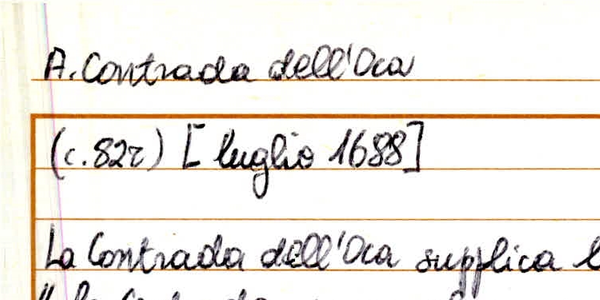 A. Contrada dell'Oca
(c. 82r) [luglio 1688]
La Contrada dell'Oca supplica